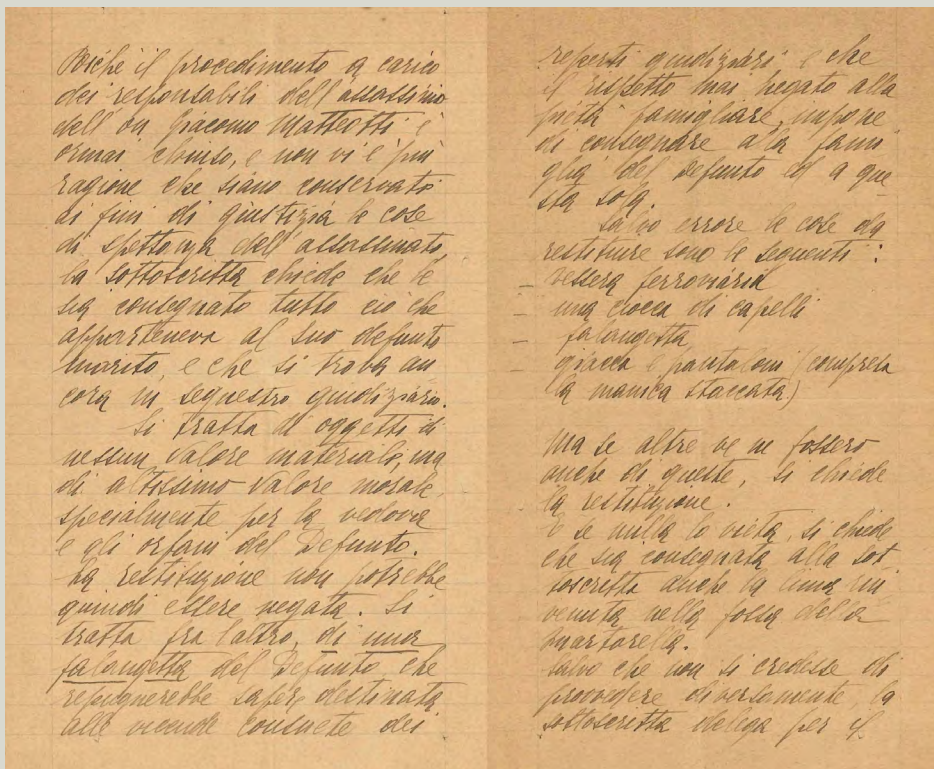 Poichè il procedimento a carico
dei responsabili dell'assassinio
dell'on Giacomo Matteotti è
ormai chiuso, e non vi è più
ragione che siano conservate
ai fini di giustizia le cose
di spettanza dell'assassinato,
la sottoscritta chiede che le
sia consegnato tutto ciò che
apparteneva al suo defunto
marito, e che si trova an
cora in sequestro giudiziario.
Si tratta di oggetti di
nessun valore materiale, ma
di altissimo valore morale,
specialmente per la vedova
e gli orfani del Defunto.
La restituzione non potrebbe
quindi essere negata. Si
tratta fra l'altro, di una
falangetta del Defunto che
repugnerebbe saper destinata
alle vicende consuete dei
reperti giudiziari e che
il rispetto mai negato alla
pietà famigliare, impone
di consegnare alla fami
glia del defunto ed a que
sta sola.
Salvo errore le cose da
restituire sono le seguenti:
- tessera ferroviaria
- una ciocca di capelli
- falangetta
- giacca e pantaloni (compresa
la manica staccata)
Ma se altre ve ne fossero
anche di queste, si chiede
la restituzione.
E se nulla lo vieta, si chiede
che sia consegnata alla sot
toscritta anche la lima rin
venuta nella fossa della
Quartarella.
Salvo che non si credesse di
provvedere diversamente, la
sottoscritta delega per il